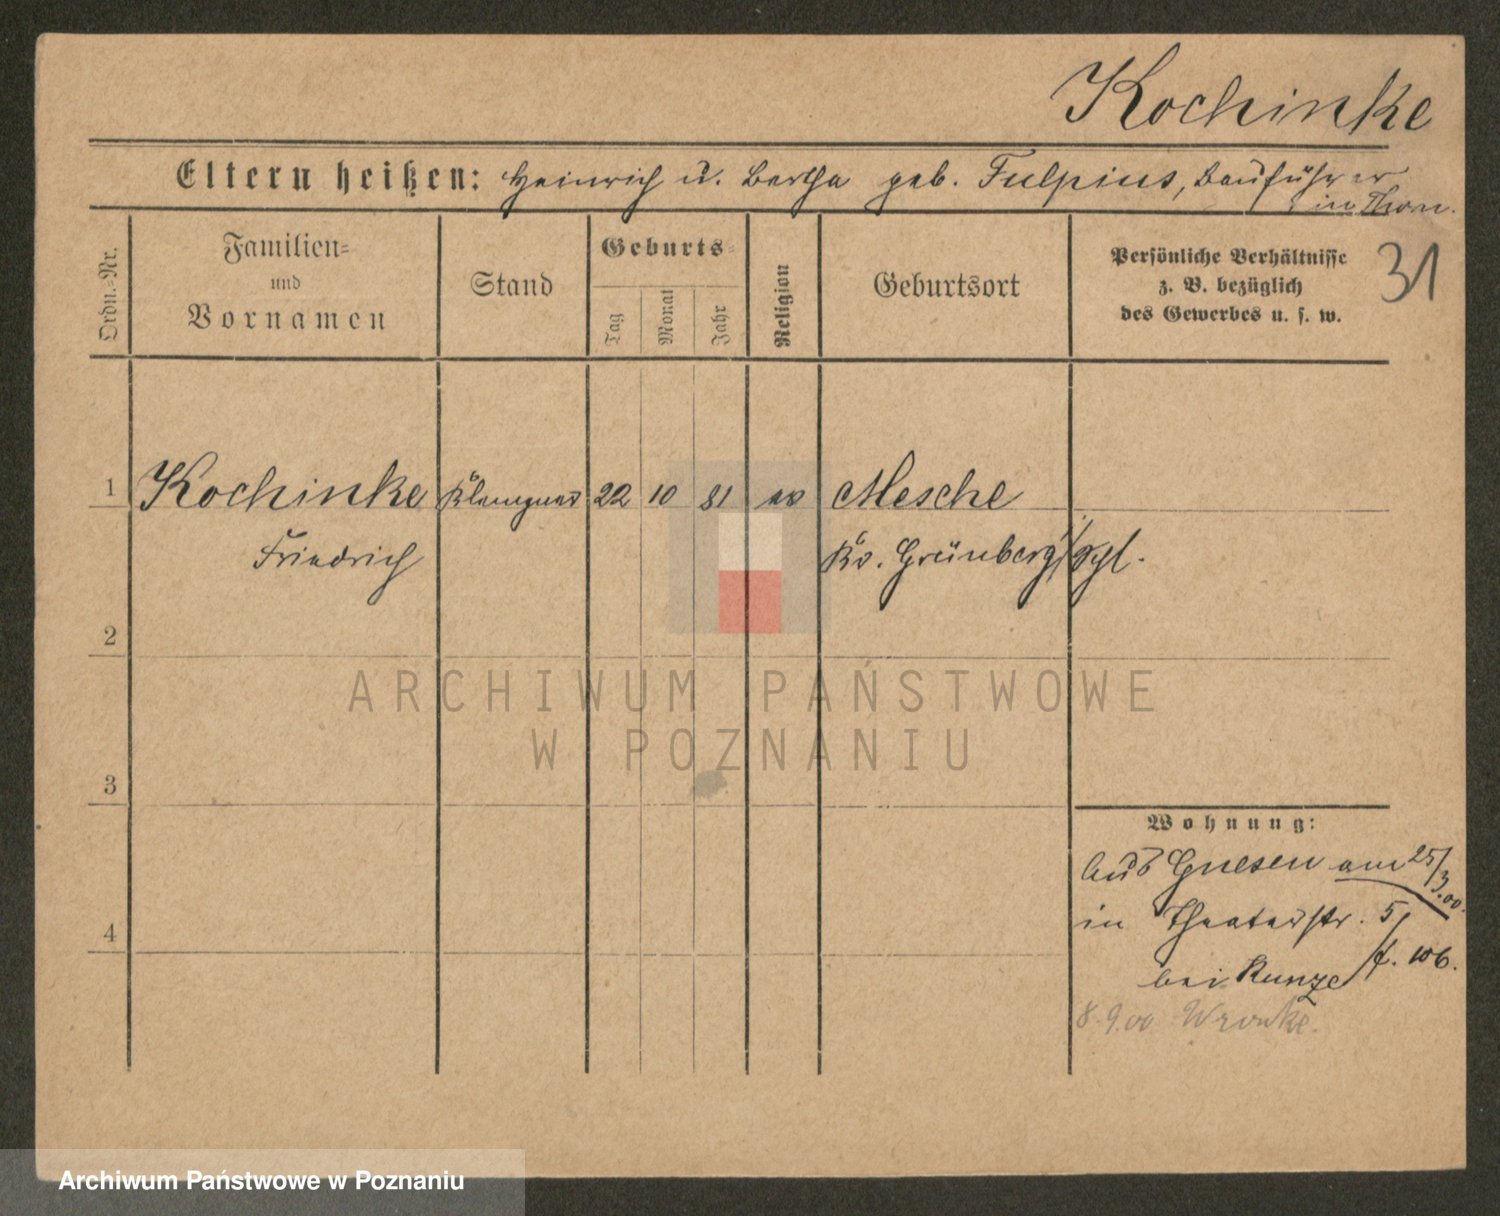 Kochinke
Eltern heißen: Heinrich u. Bertha geb. Fulpius, Bauführer
in Thorn.
Ordn.-Nr.
Familien-
und
Vornamen
Stand
Geburts-
Tag
Monat
Jahr
Religion
Geburtsort
Persönliche Verhältnisse
z. B. bezüglich
des Gewerbes u. s. w.
31
1 Kochinke Klempner 22 10 81 ev Mesche
Friedrich Kr. Grünberg
2
3
4
Wohnung:
Aus Gnesen am 25/3.00.
in Theaterstr. 5
bei Kunze
8.9.00 Wronke.
ARCHIWUM PAŃSTWOWE
W POZNANIU
Archiwum Państwowe w Poznaniu